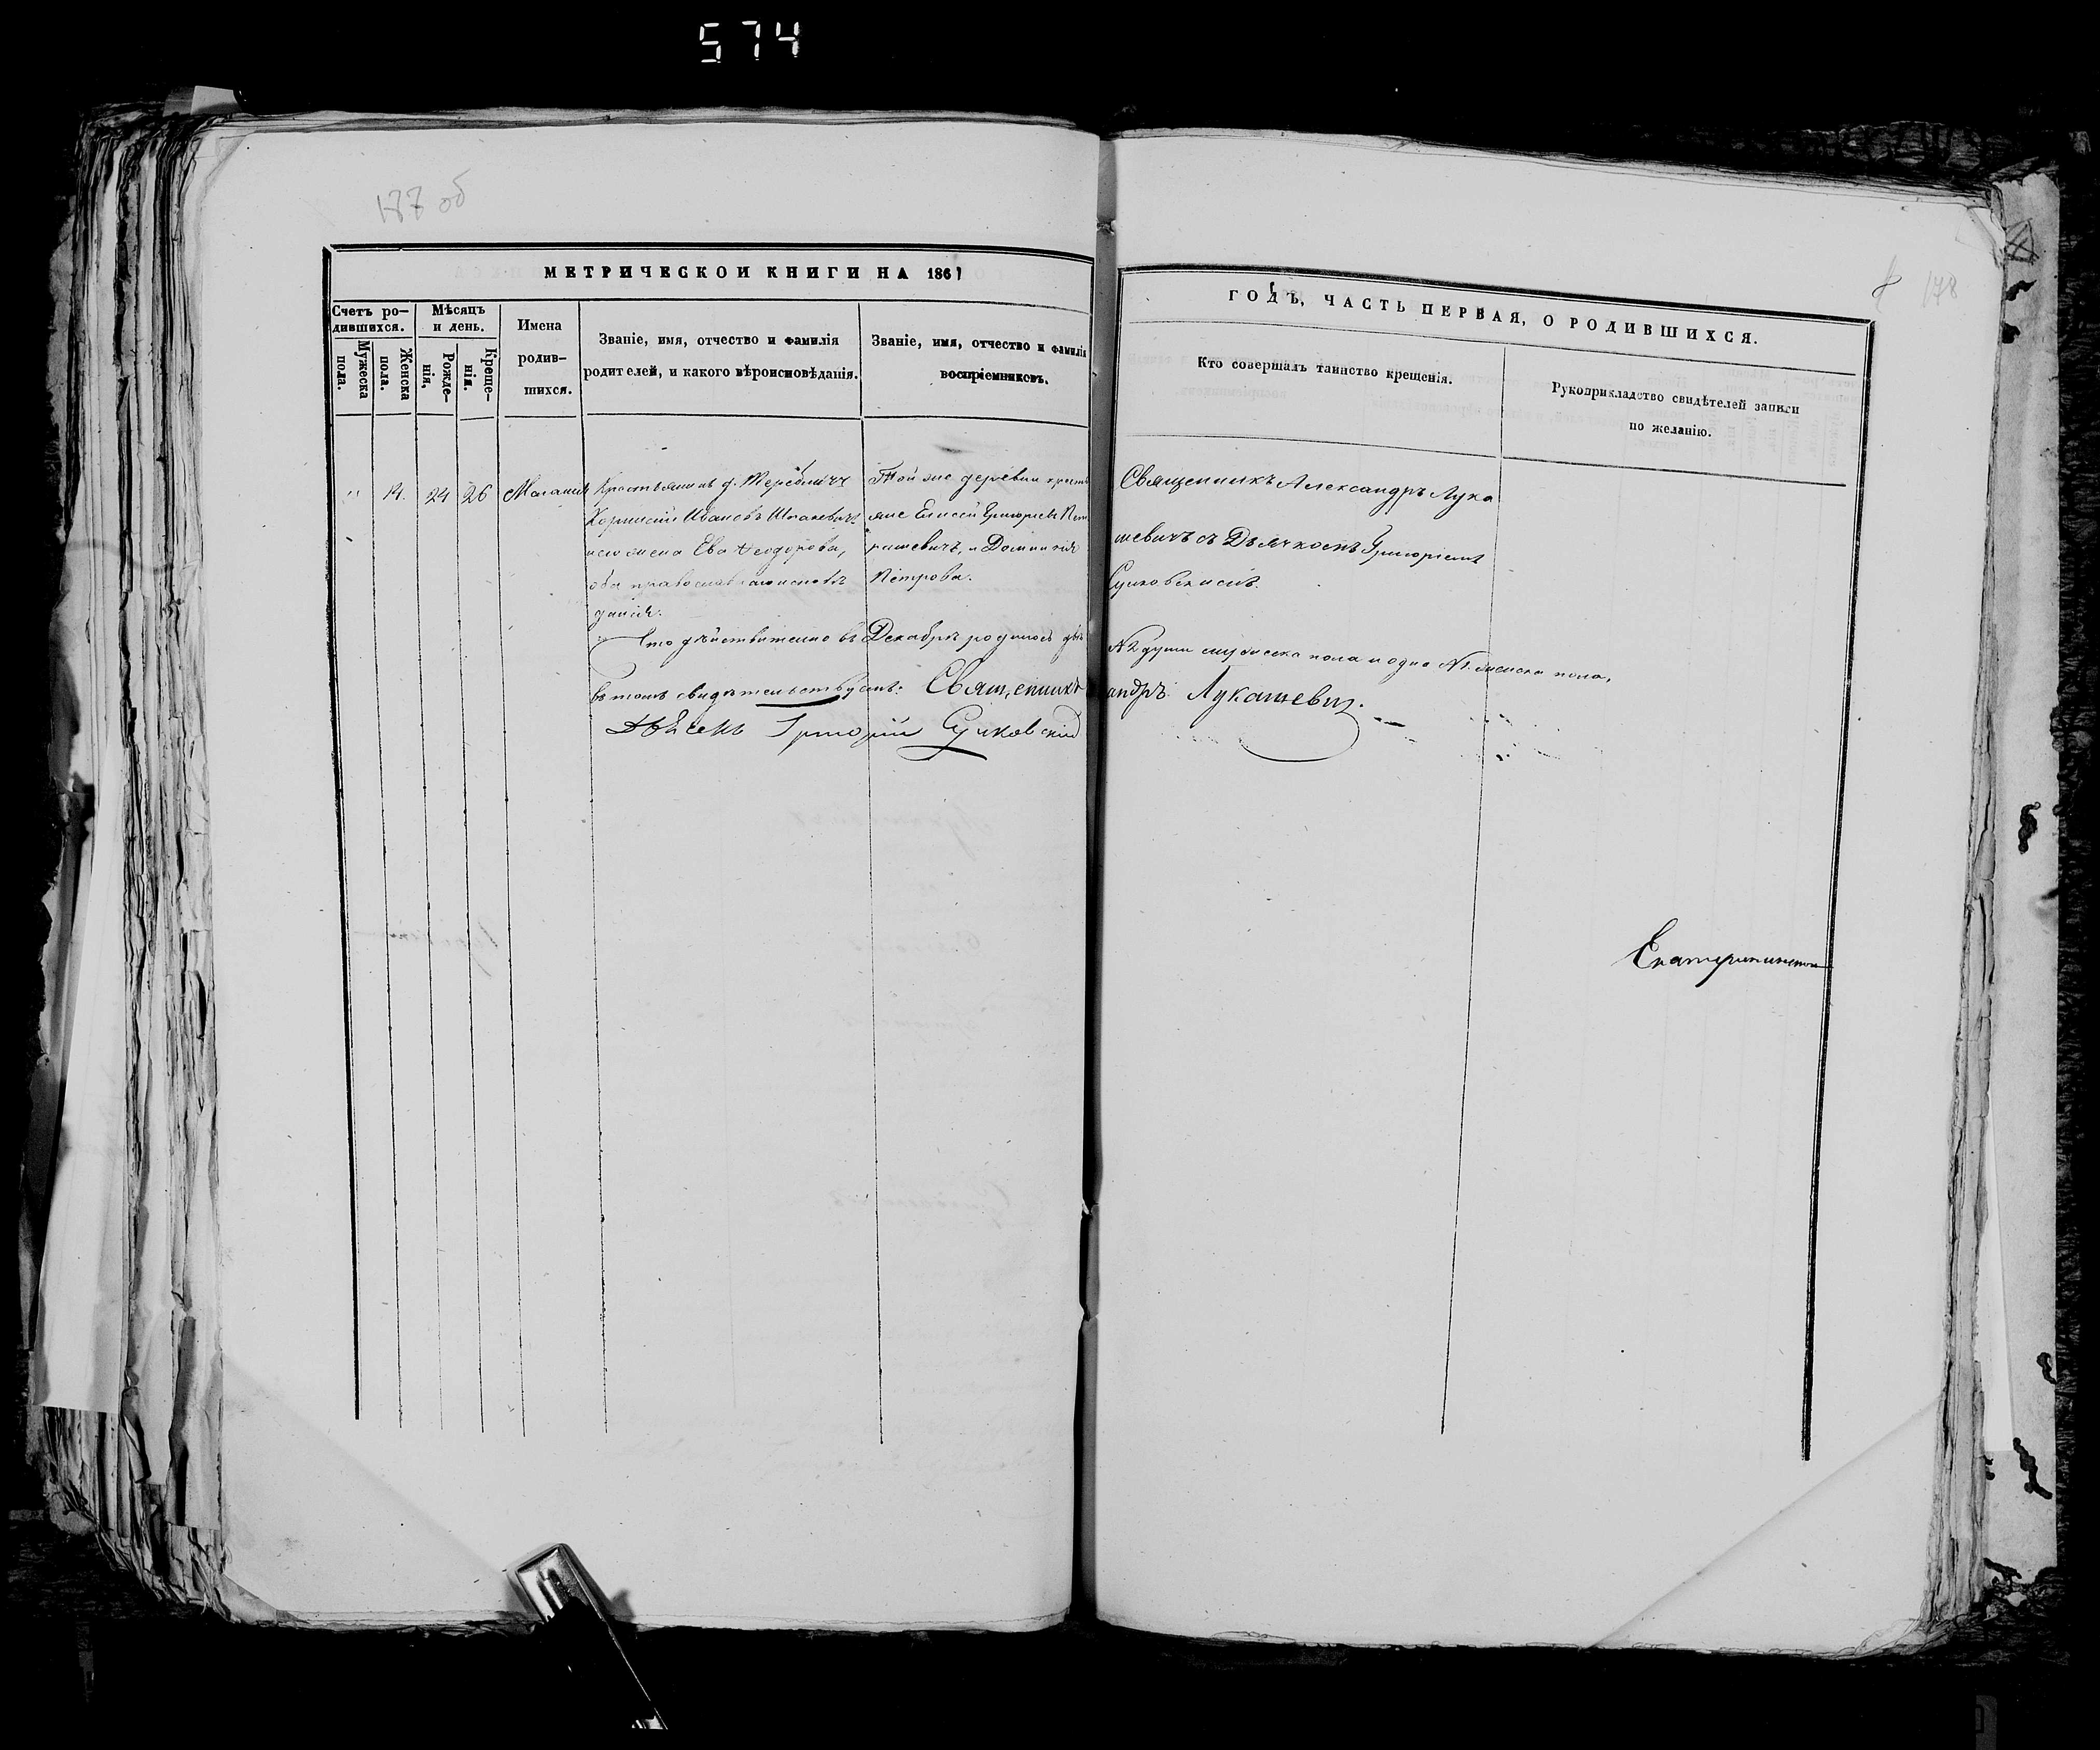 574
177 об
178
МЕТРИЧЕСКОИ КНИГИ НА 1861
ГОДЪ, ЧАСТЬ ПЕРВАЯ, О РОДИВШИХСЯ.
Счетъ ро-
дившихся.
Мужеска
пола.
Женска
пола.
Мѣсяцъ
и день.
Рожде-
нія,
Креще-
нія.
Имена
родив-
шихся.
Званіе, имя, отчество и фамилія
родителей, и какого вѣроисповѣданія.
Званіе, имя, отчество и фамилія
воспріемниковъ.
Кто совершалъ таинство крещенія.
Рукоприкладство свидѣтелей записи
по желанію.
"
14.
24
26
Маланія
Крестьянинъ д. Теребличъ
Ивановъ
жена Ева Ѳеодорова,
оба православнаго исповѣ
данія.
Той же деревни кресть
яне Елисей Григорьевъ Пет
рашевичъ, и Доминикія
Петрова.
Священникъ Александръ Лука
шевичъ съ Дьячкомъ Григоріемъ
Сулковскимъ.
Что дѣйствительно въ Декабрѣ родилось двѣ № 2 души мужеска пола и одна № 1. женска пола,
въ томъ свидѣтельствуемъ: Священникъ андръ Лукашевич.
Дьячекъ Григорій Сулковскій
Екатерининской